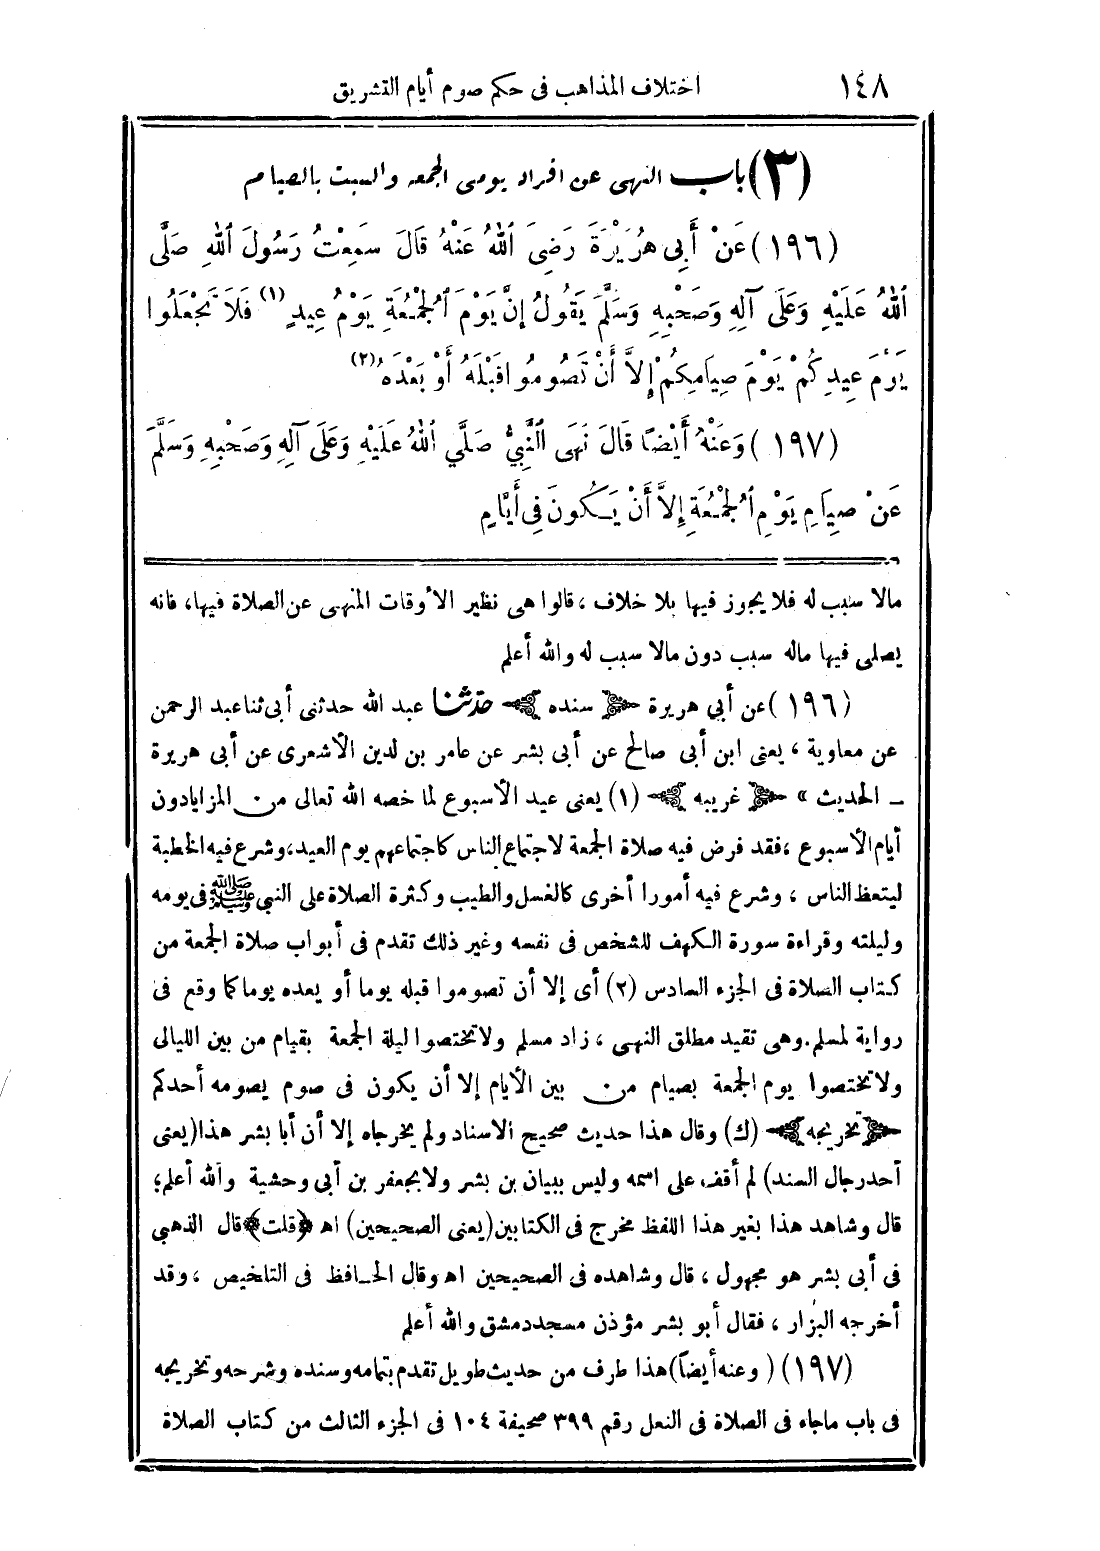 ١٤٨ اختلاف المذاهب فى حكم صوم أيام التشريق
(٣) باب النهى عن افراد يومى الجمعه والسبت بالصيام
(١٩٦) عَنْ أَبِي هُرَيْرَةَ رَضِيَ اللهُ عَنْهُ قَالَ سَمِعْتُ رَسُولَ اللهِ صَلَّى
اللهُ عَلَيْهِ وَعَلَى آلِهِ وَصَحْبِهِ وَسَلَّمَ يَقُولُ إِنَّ يَوْمَ الْجُمُعَةِ يَوْمُ عِيدٍ (١) فَلَا تَجْعَلُوا
يَوْمَ عِيدِكُمْ يَوْمَ صِيَامِكُمْ إِلاَّ أَنْ تَصُومُوا قَبْلَهُ أَوْ بَعْدَهُ (٢)
(١٩٧) وَعَنْهُ أَيْضًا قَالَ نَهَى النَّبِيُّ صَلَّي اللهُ عَلَيْهِ وَعَلَى آلِهِ وَصَحْبِهِ وَسَلَّمَ
عَنْ صِيَامِ يَوْمِ الْجُمُعَةِ إِلاَّ أَنْ يَكُونَ فِى أَيَّامٍ
مالا سبب له فلا يجوز فيها بلا خلاف ، قالوا هى نظير الأوقات المنهى عن الصلاة فيها، فانه
يصلى فيها ماله سبب دون مالا سبب له والله أعلم
(١٩٦) عن أبي هريرة ﴿ سنده ﴾ حدّثنا عبد الله حدثنى أبى ثنا عبد الرحمن
عن معاوية ، يعنى ابن أبى صالح عن أبى بشر عن عامر بن لدين الأشعرى عن أبى هريرة
ـ الحديث » ﴿ غريبه ﴾ (١) يعنى عيد الأسبوع لما خصه الله تعالى من المزايا دون
أيام الأسبوع ، فقد فرض فيه صلاة الجمعة لاجتماع الناس كاجتماعهم يوم العيد، وشرع فيه الخطبة
ليتعظ الناس ، وشرع فيه أمورا أخرى كالغسل والطيب وكثرة الصلاة على النبى ﷺ فى يومه
وليلته وقراءة سورة الكهف للشخص فى نفسه وغير ذلك تقدم فى أبواب صلاة الجمعة من
كتاب الصلاة فى الجزء السادس (٢) أى إلا أن تصوموا قبله يوما أو بعده يوما كما وقع فى
رواية لمسلم. وهى تقيد مطلق النهى ، زاد مسلم ولا تختصوا ليلة الجمعة بقيام من بين الليالى
ولا تختصوا يوم الجمعة بصيام من بين الأيام إلا أن يكون فى صوم يصومه أحدكم
﴿ تخريجه ﴾ (ك) وقال هذا حديث صحيح الاسناد ولم يخرجاه إلا أن أبا بشر هذا (يعنى
أحد رجال السند) لم أقف على اسمه وليس ببيان بن بشر ولا بجعفر بن أبى وحشية والله أعلم؛
قال وشاهد هذا بغير هذا اللفظ مخرج فى الكتابين (يعنى الصحيحين) اهـ ﴿قلت﴾ قال الذهبى
فى أبى بشر هو مجهول ، قال وشاهده فى الصحيحين اهـ وقال الحـافظ فى التلخيص ، وقد
أخرجه البزار ، فقال أبو بشر مؤذن مسجد دمشق والله أعلم
(١٩٧) ( وعنه أيضاً) هذا طرف من حديث طويل تقدم بتمامه وسنده وشرحه وتخريجه
فى باب ماجاء فى الصلاة فى النعل رقم ٣٩٩ صحيفة ١٠٤ فى الجزء الثالث من كتاب الصلاة